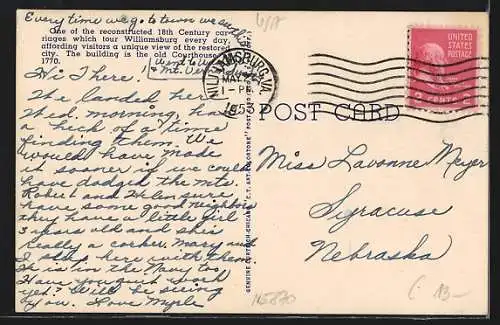 Every time we go to town we
One of the reconstructed 18th Century car-
riages which tour Williamsburg every day,
affording visitors a unique view of the restored
city. The building is the old Courthouse
1770.
went to
& Mt. Ver
Hi There!
We landed here
Wed. morning, had
a heck of a time
finding them. We
would have made
it sooner if we could
have dodged the mts.
Robert and Helen sure
have some good neighbors
they have a little girl
3 years old and she's
really a corker. Mary and
I stay here with them.
He is in the Navy too.
Have you quit work
yet? Will be seeing
you. Love Myrle
GENUINE CURTEICH-CHICAGO "C.T. ART-COLORTONE" POST CARD
WILLIAMSBURG, VA.
1-PM
1953
UNITED STATES
POSTAGE
2 CENTS 2
POST CARD
Miss Lavonne Meyer
Syracuse
Nebraska
13-